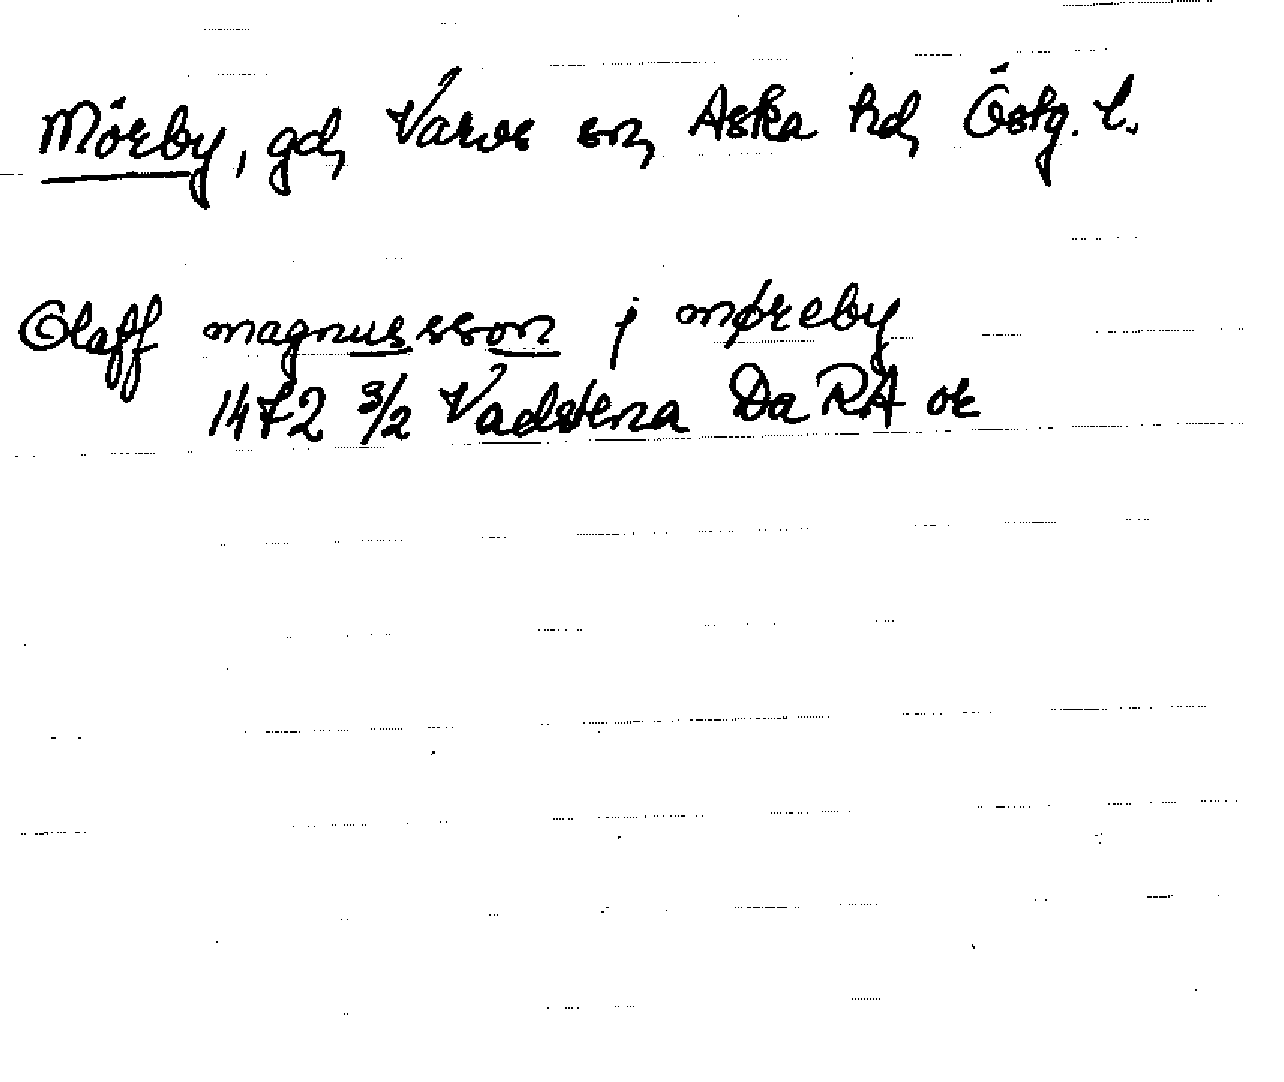 Mörby, gd, Varvs sn, Aska hd, Östg. l.
Olaff magnusson j møreby
1472 3/2 Vadstena Da RA or